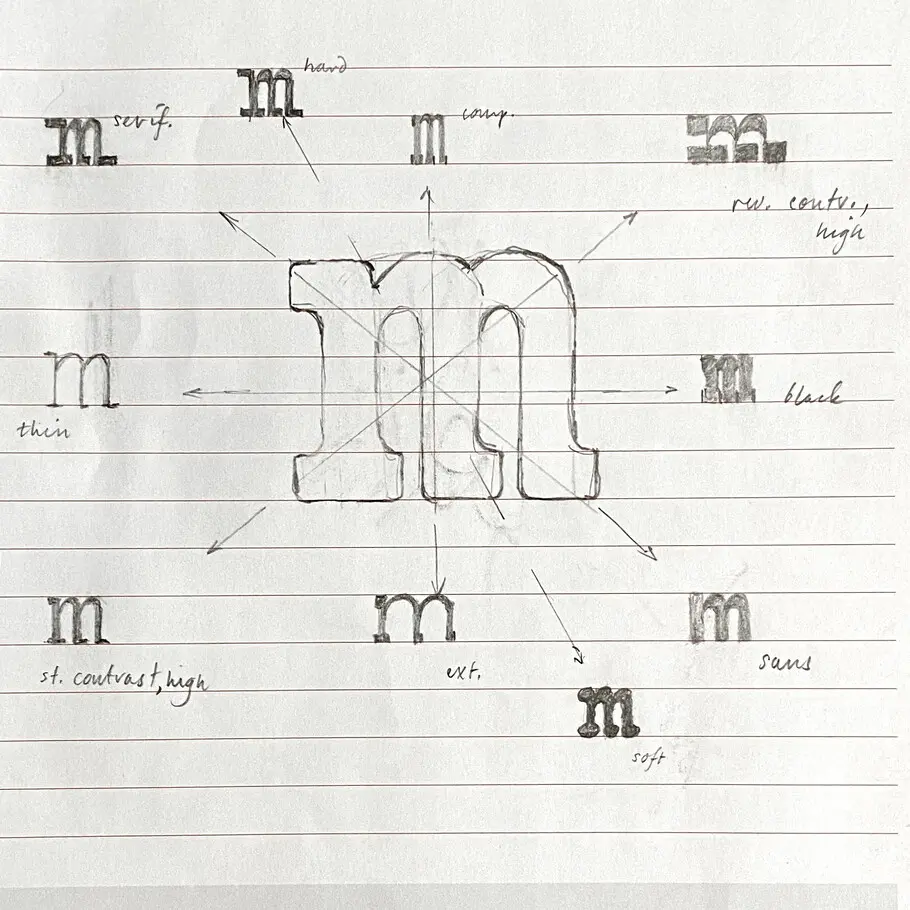 m hard
m serif.
m comp.
m
rev. contr.,
high
m
m
thin
m
black
m
st. contrast, high
m
ext.
m
sans
m
soft